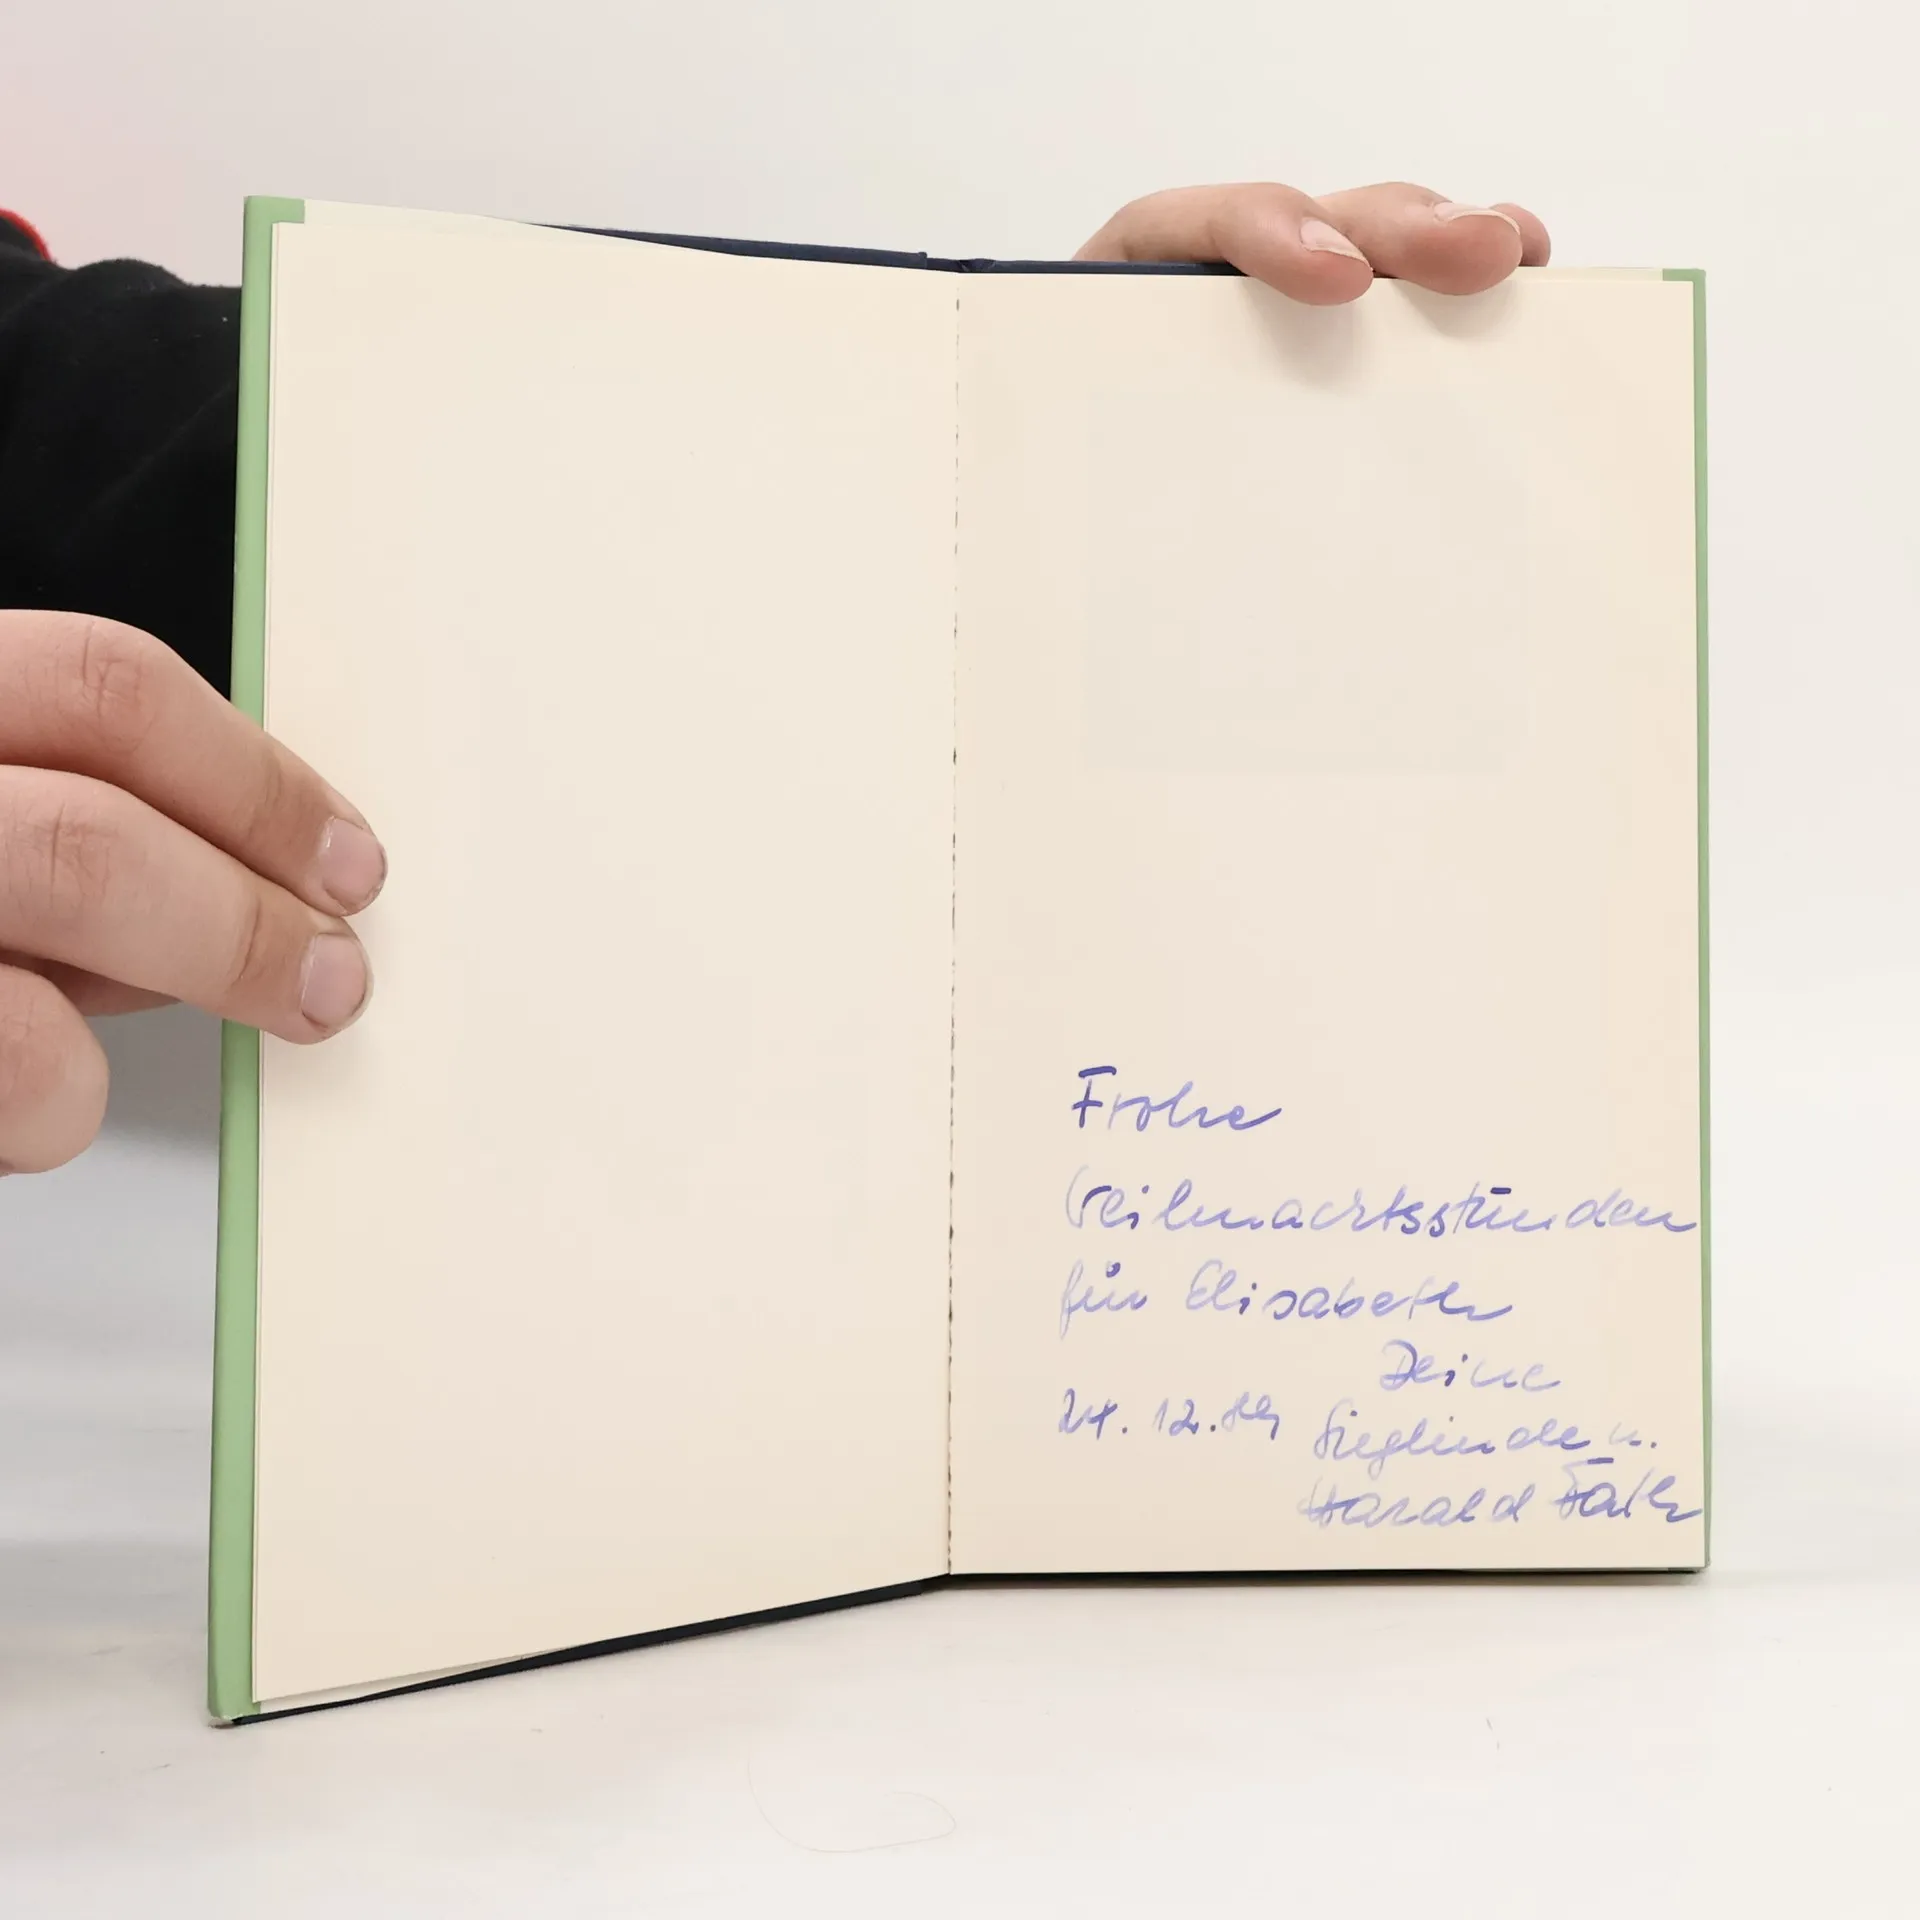 Frohe
Weihnachtsstunden
für Elisabeth
Deine
24. 12. Sieglinde u.
Harald